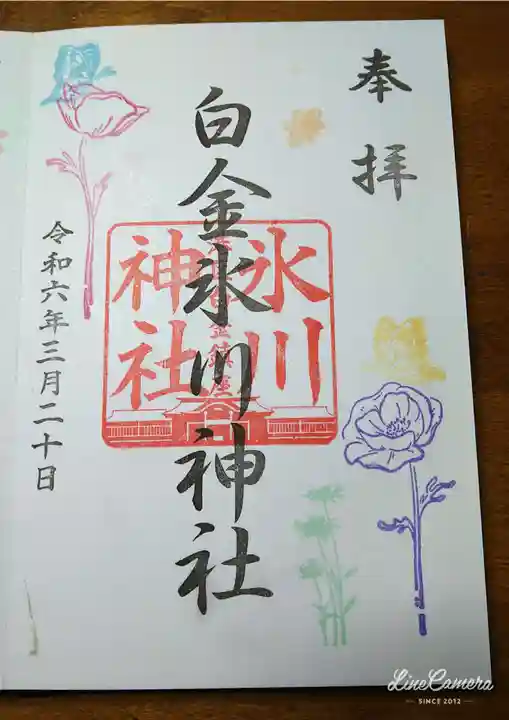 奉拝
白金氷川神社
氷川
神社
令和六年三月二十日
LineCamera
SINCE 2012